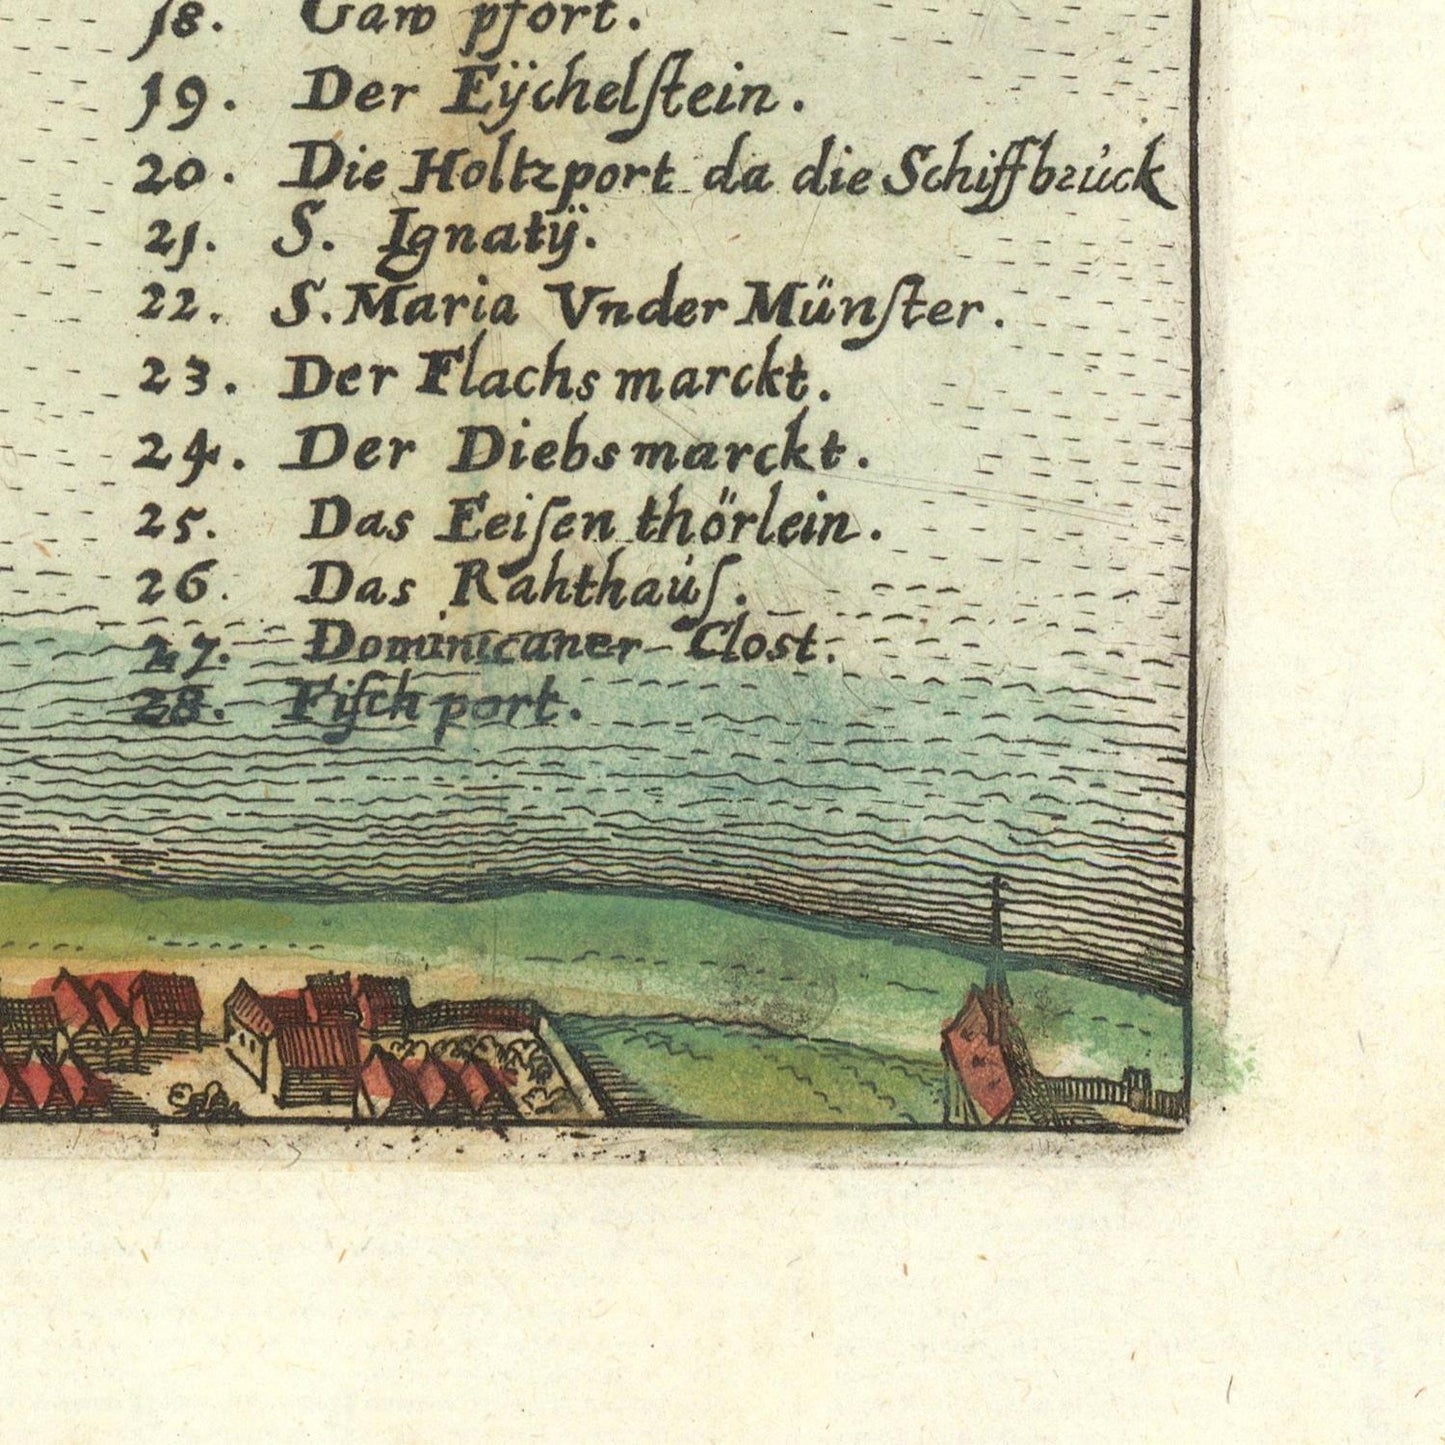 18. Gaw pfort.
19. Der Eÿchelſtein.
20. Die Holtzport da die Schiffbrück
21. S. Ignatÿ.
22. S. Maria Vnder Münſter.
23. Der Flachsmarckt.
24. Der Diebsmarckt.
25. Das Eeiſen thörlein.
26. Das Rahthaúſ.
27. Dominicaner-Clost.
28. Fiſchport.